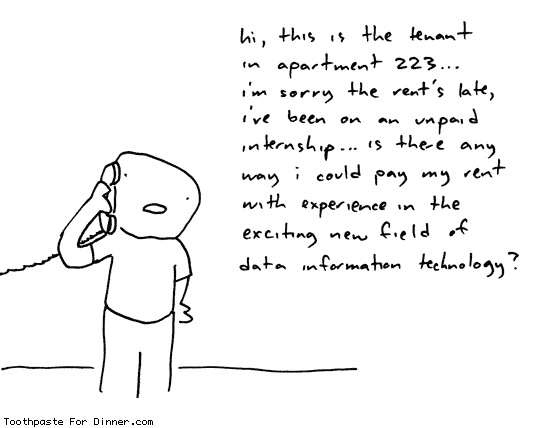 hi, this is the tenant
in apartment 223...
i'm sorry the rent's late,
i've been on an unpaid
internship... is there any
way i could pay my rent
with experience in the
exciting new field of
data information technology?
Toothpaste For Dinner.com